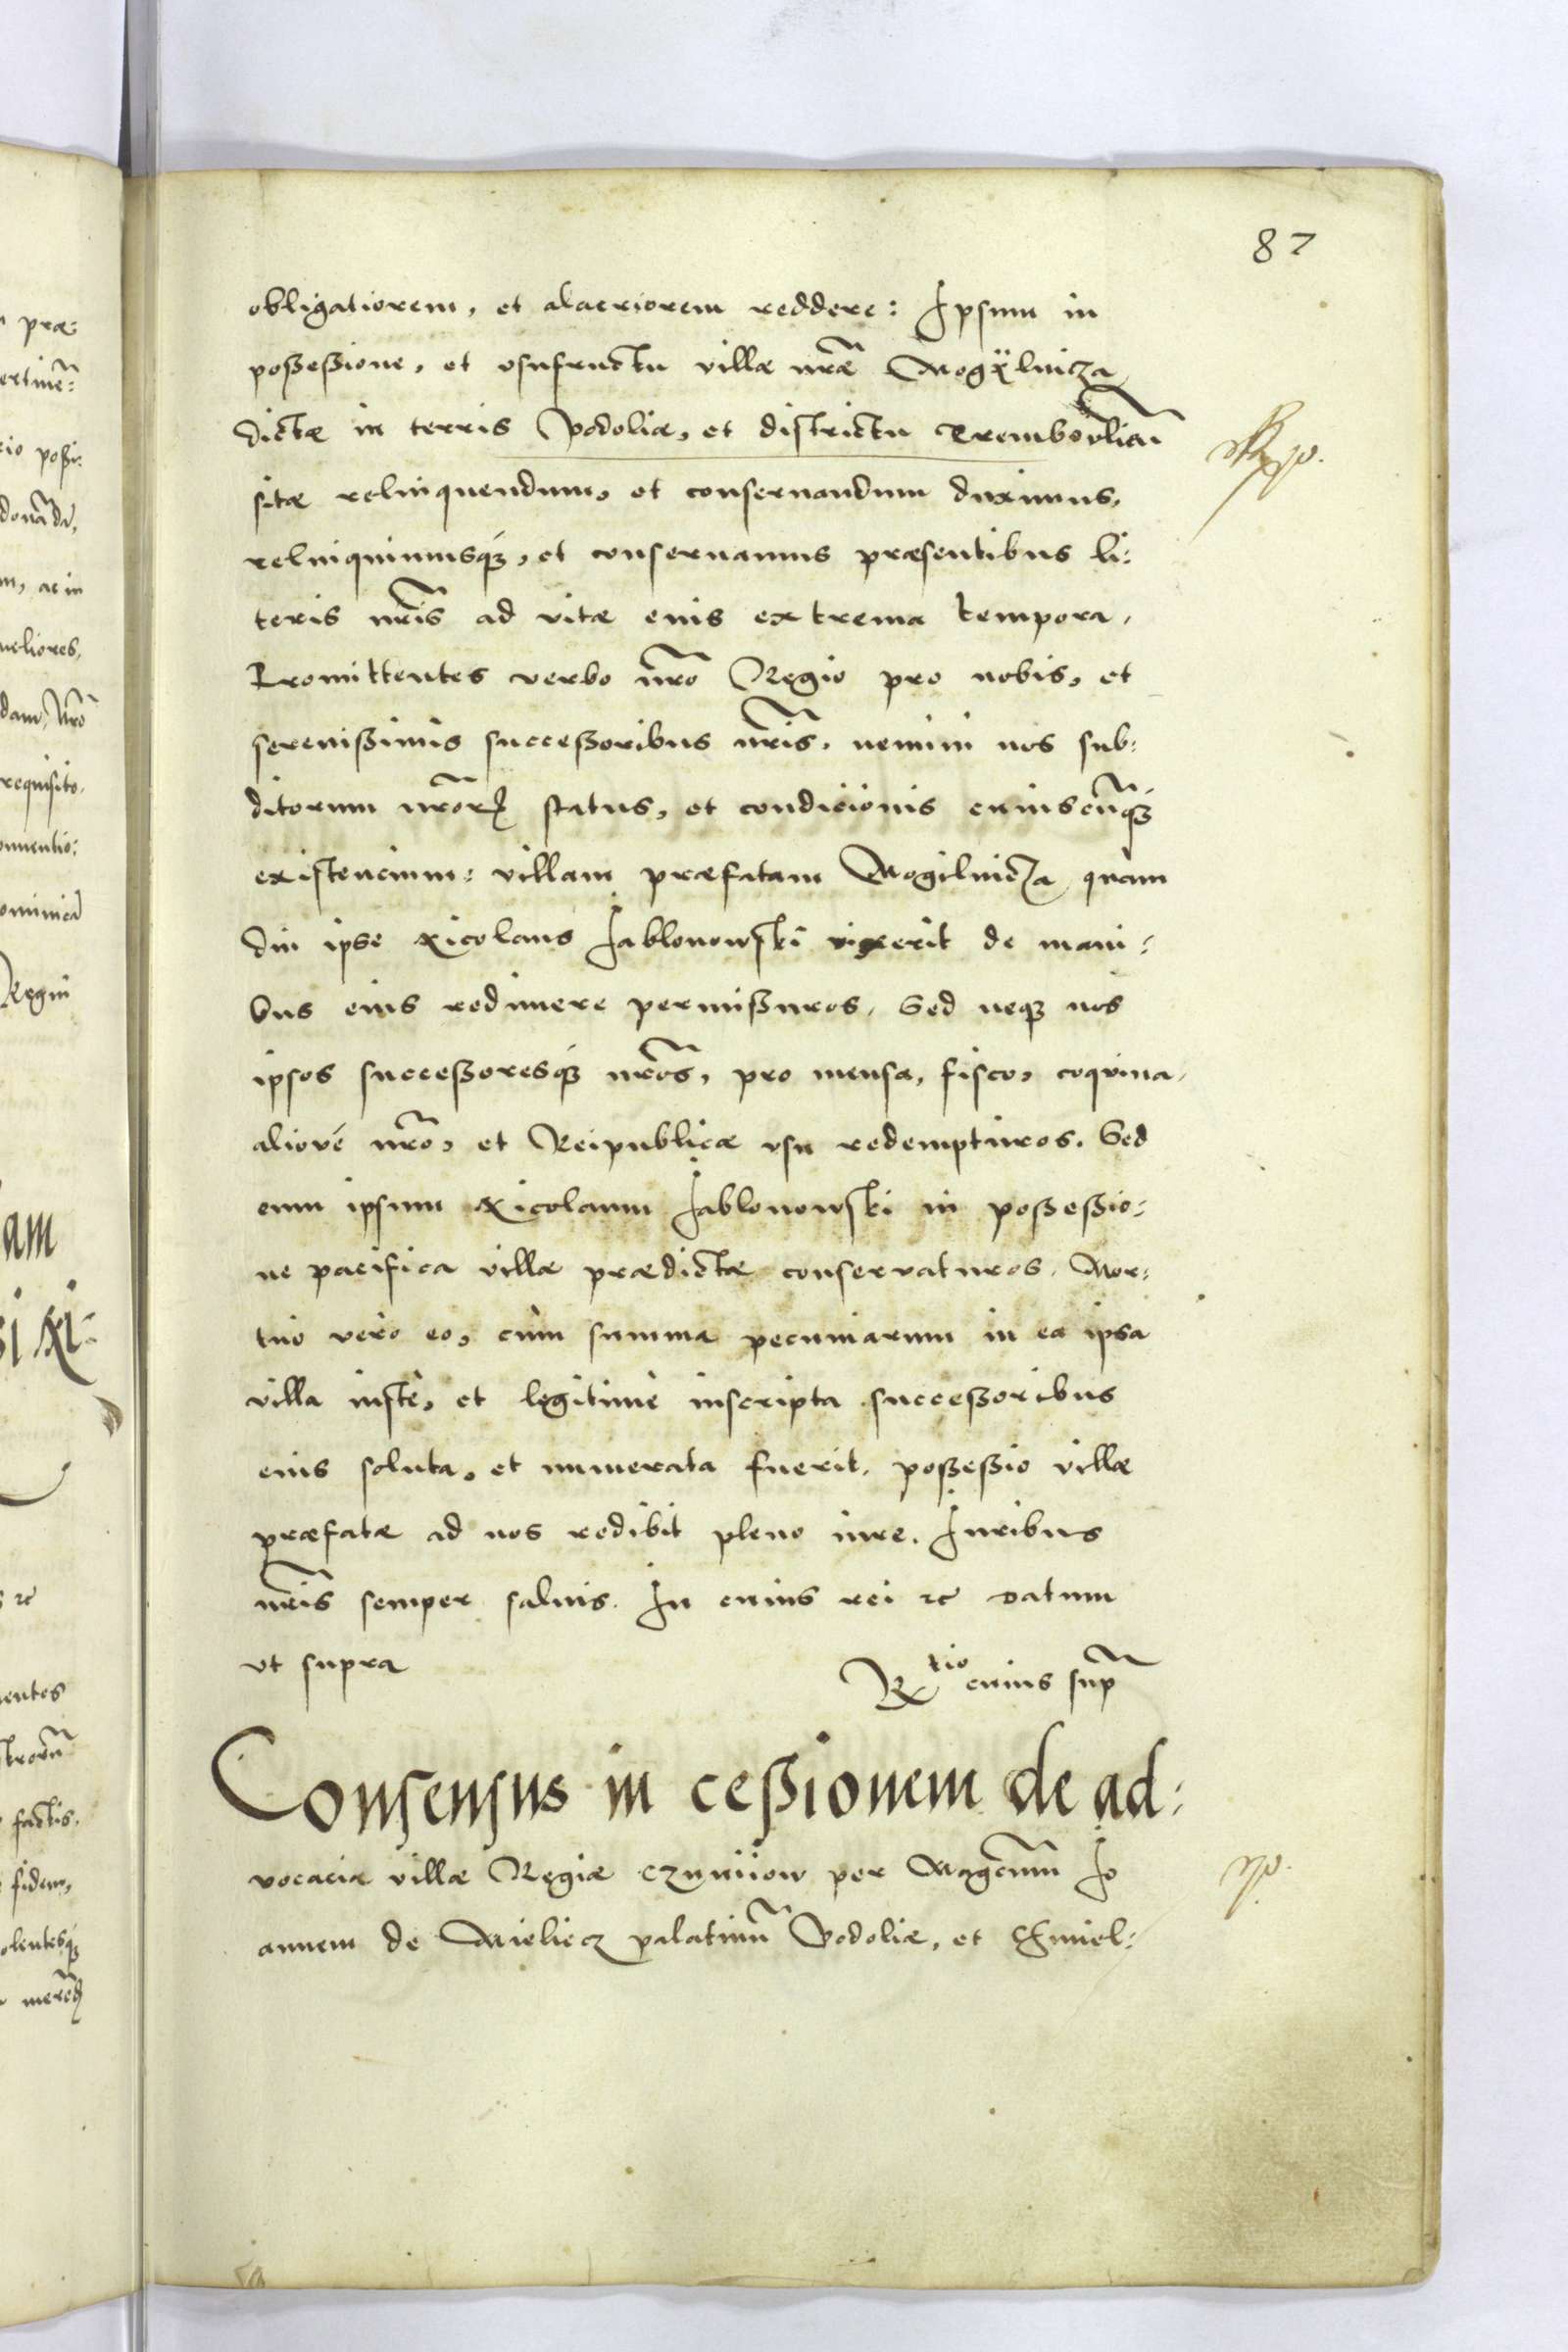 87
obligatiorem, et alacriorem reddere: Ipsum in
possessione, et vsufructu villæ nræ Mogÿlnicza
dictæ in terris Podoliæ, et districtu Trembovlien
sitæ relinquendum, et conseruandum duximus,
relinquimusq́, et conseruamus præsentibus li:
teris nris ad vitæ eius extrema tempora.
Promittentes verbo nro Regio pro nobis, et
serenissimis successoribus nris, nemini nos sub:
ditorum nror status, et condicionis cuiuscunq́
existencium: villam præfatam Mogilnicza quam
diu ipse Nicolaus Jablonowski vixerit de mani:
bus eius redimere permissuros. Sed neq nos
ipsos successoresq́ nros, pro mensa, fisco, coquina,
aliové nro, et Reipublicæ vsu redempturos. Sed
eum ipsum Nicolaum Jablonowski in possessio:
ne pacifica villæ prædictæ conservaturos. Mor:
tuo vero eo, cùm summa pecuniarum in ea ipsa
villa iustè, et legitimè inscripta successoribus
eius soluta, et numerata fuerit, possessio villæ
præfatæ ad nos redibit pleno iure. Iuribus
nris semper saluis. In cuius rei etc Datum
vt supra
Rtio cuius sup
Consensus in cessionem de ad:
vocaciæ villæ Regiæ Czuniiow per Magcum Io
annem de Mieliecz palatinu Podoliæ, et Chmiel: